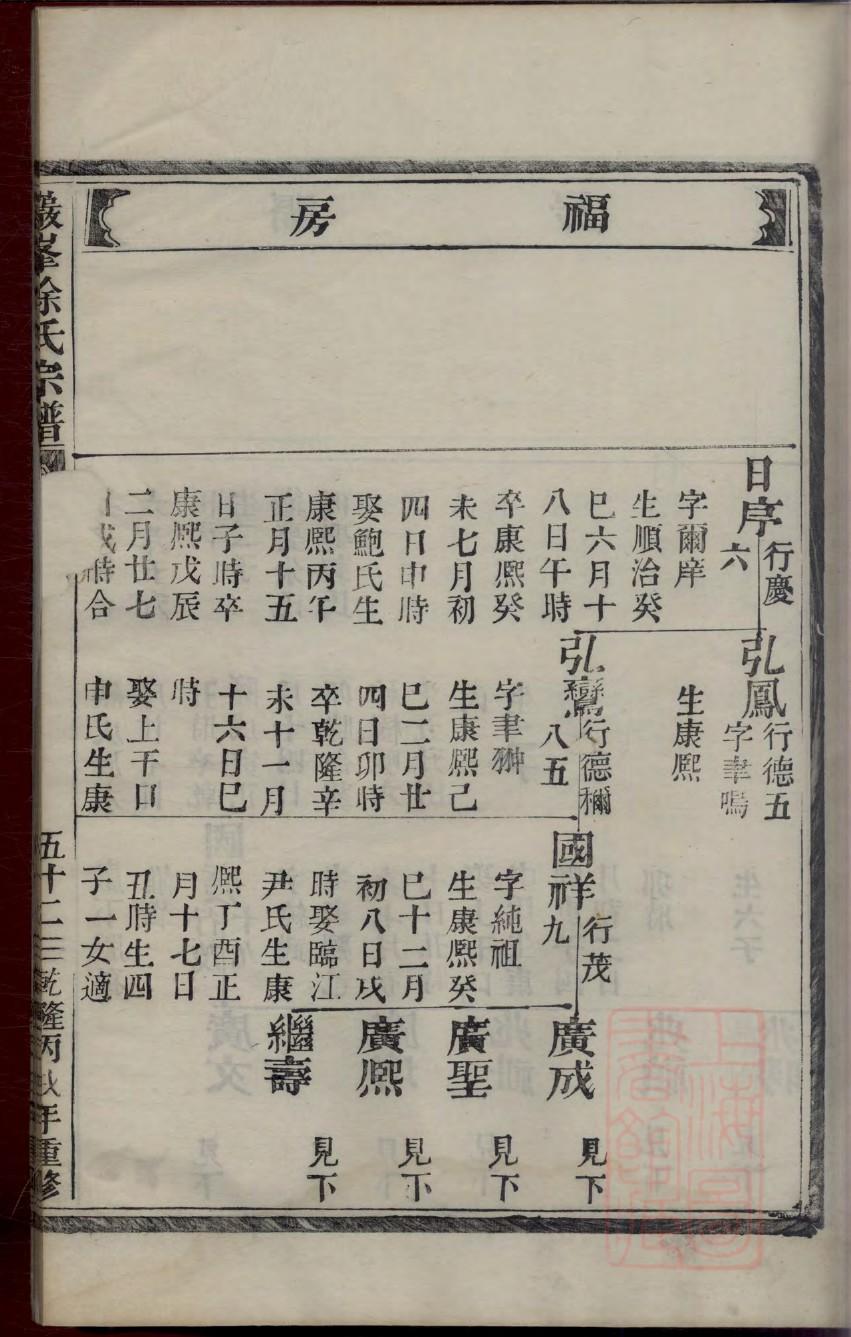 福房
日序行慶六
字爾庠
生順治癸
巳六月十
八日午時
卒康熙癸
未七月初
四日申時
娶鮑氏生
康熙丙午
正月十五
日子時卒
康熙戊辰
二月廿七
日戌時合
弘鳳行德五
字聿鳴
生康熙
弘鸞行德
八五
字聿翀
生康熙己
巳二月廿
四日卯時
卒乾隆辛
未十一月
十六日巳
時
娶上干口
申氏生康
國祥行茂九
字純祖
生康熙癸
巳十二月
初八日戌
時娶臨江
尹氏生康
熙丁酉正
月十七日
丑時生四
子一女適
廣成見下
廣聖見下
廣熙見下
繼壽見下
巖峯徐氏宗譜
五十二
乾隆丙年重修